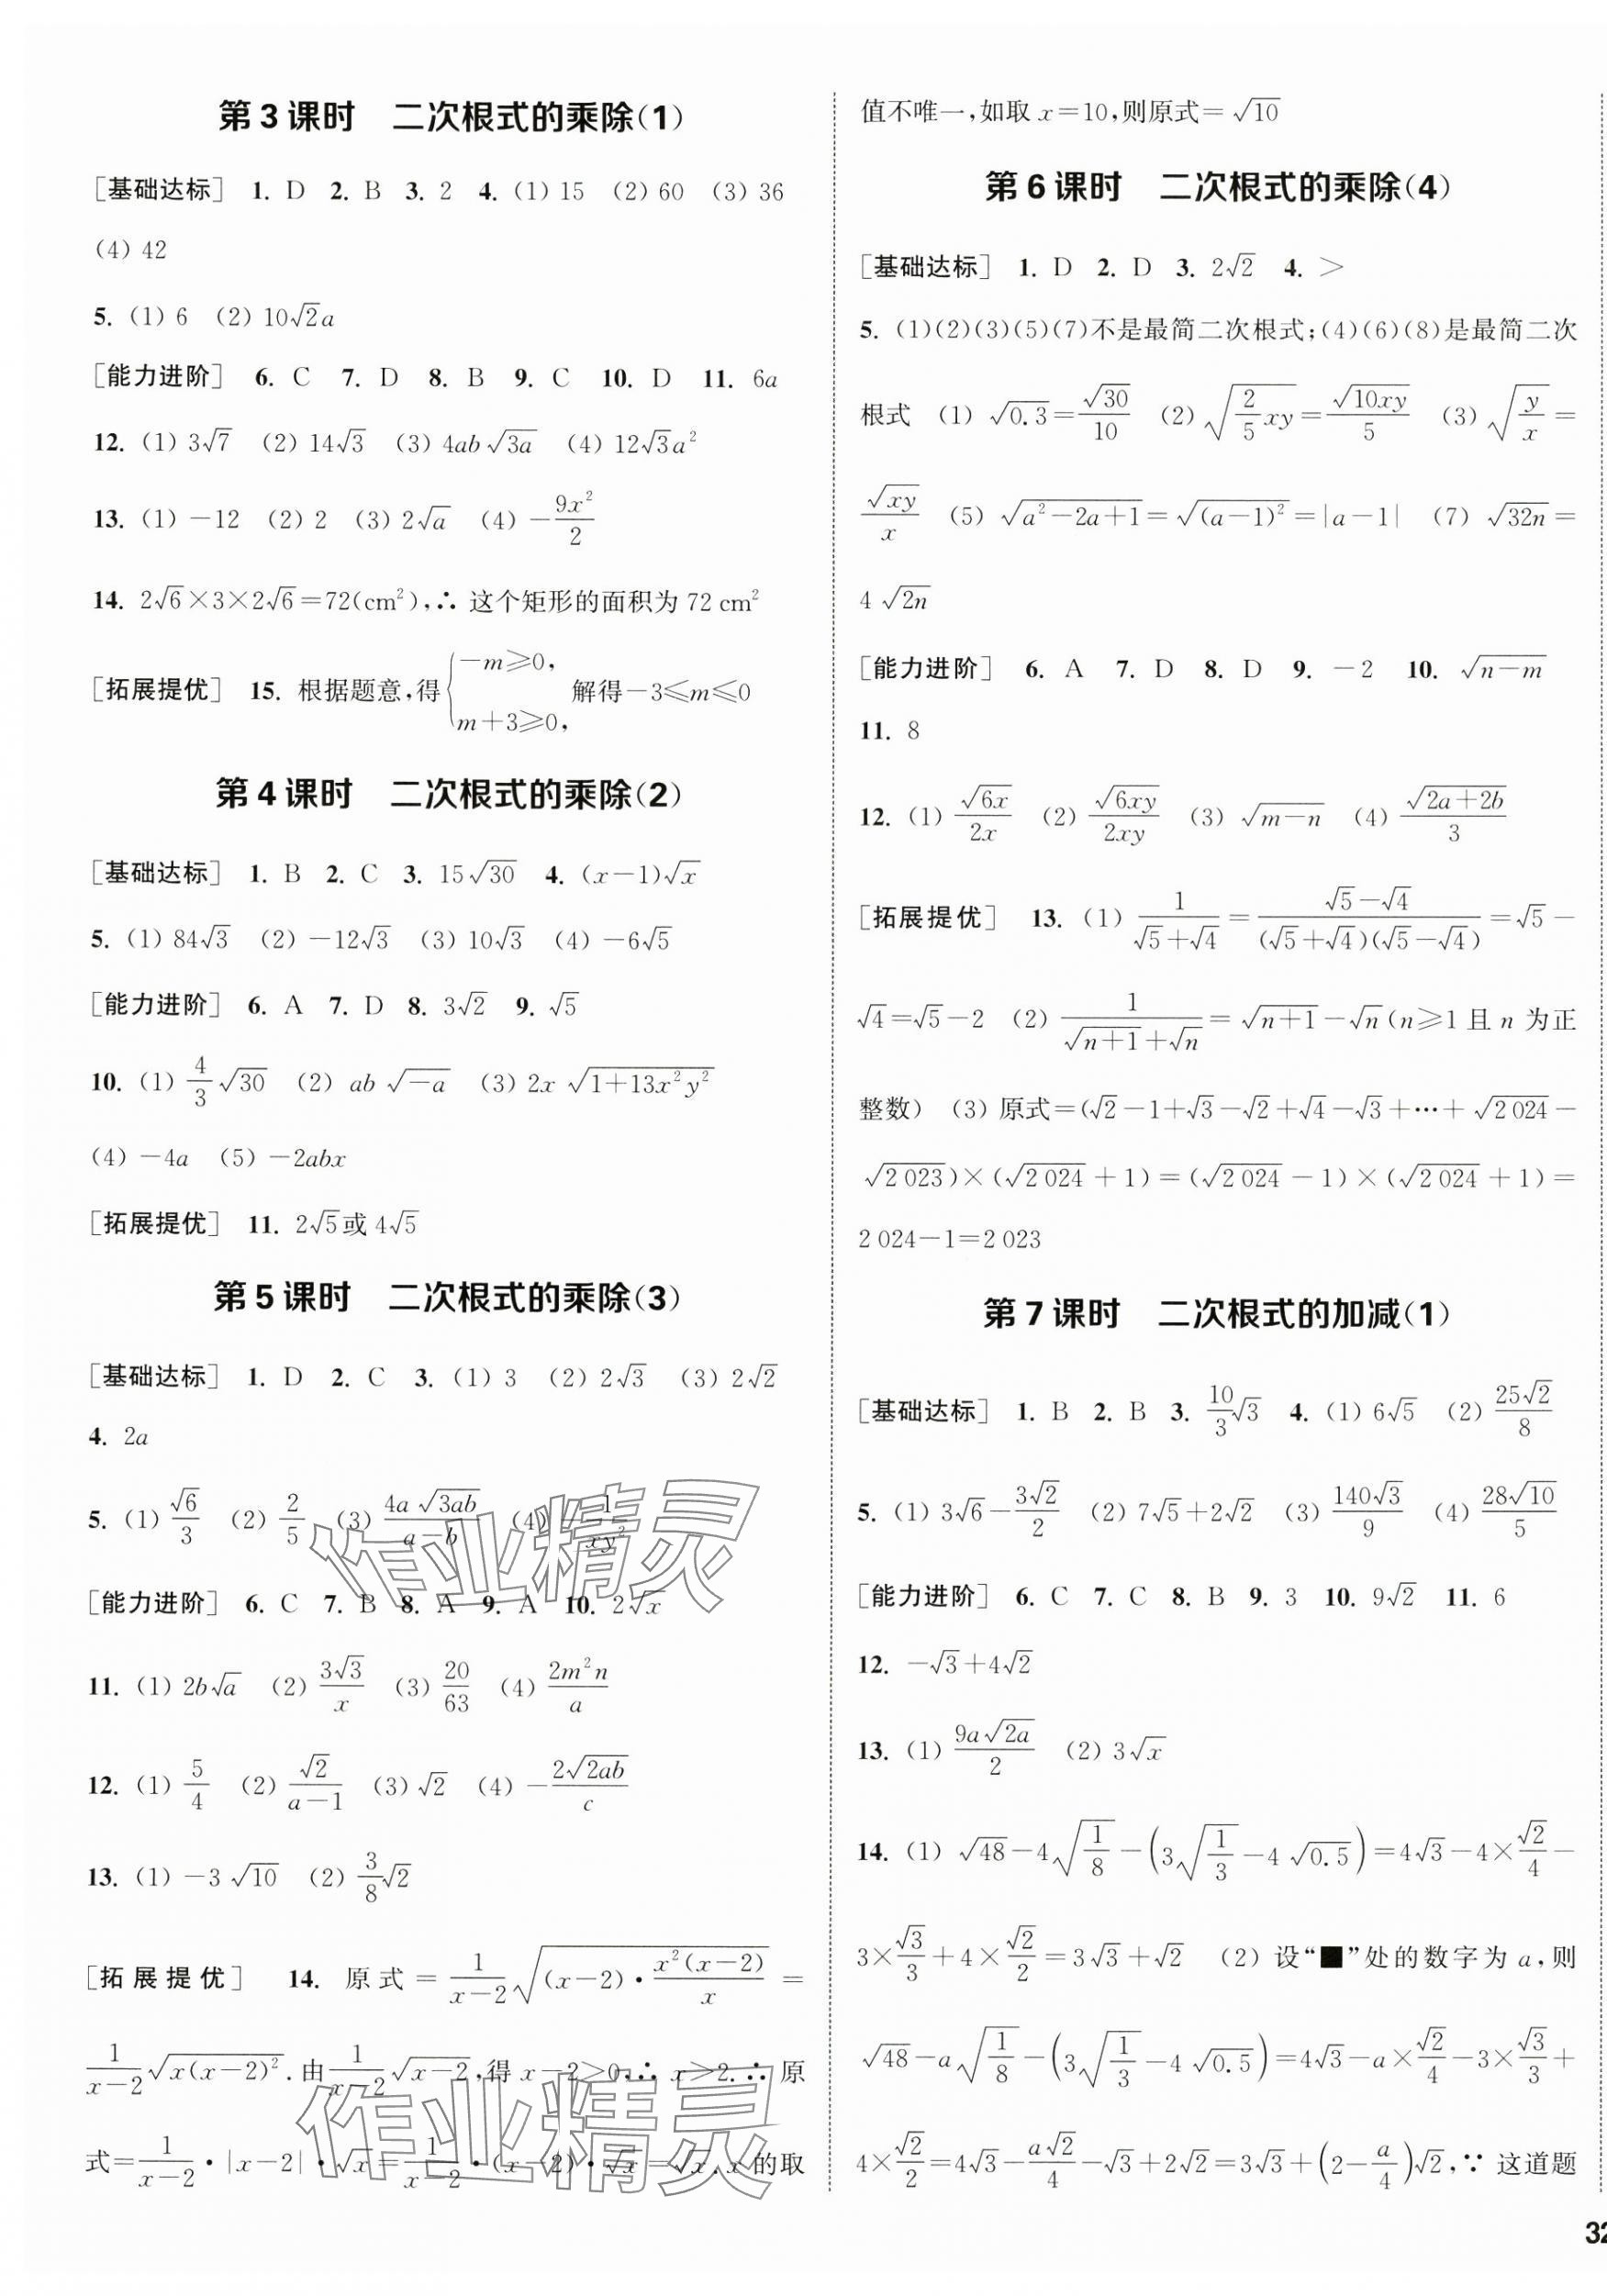 第3课时　二次根式的乘除(1)
[基础达标] 1. D 2. B 3. 2 4. (1) 15 (2) 60 (3) 36
(4) 42
5. (1) 6 (2) 10√2a
[能力进阶] 6. C 7. D 8. B 9. C 10. D 11. 6a
12. (1) 3√7 (2) 14√3 (3) 4ab√(3a) (4) 12√3a²
13. (1) －12 (2) 2 (3) 2√a (4) －9x²/2
14. 2√6×3×2√6＝72(cm²),∴ 这个矩形的面积为 72 cm²
[拓展提优] 15. 根据题意,得{－m≥0, m＋3≥0, 解得－3≤m≤0
第4课时　二次根式的乘除(2)
[基础达标] 1. B 2. C 3. 15√30 4. (x－1)√x
5. (1) 84√3 (2) －12√3 (3) 10√3 (4) －6√5
[能力进阶] 6. A 7. D 8. 3√2 9. √5
10. (1) 4/3√30 (2) ab√(－a) (3) 2x√(1＋13x²y²)
(4) －4a (5) －2abx
[拓展提优] 11. 2√5或 4√5
第5课时　二次根式的乘除(3)
[基础达标] 1. D 2. C 3. (1) 3 (2) 2√3 (3) 2√2
4. 2a
5. (1) √6/3 (2) 2/5 (3) 4a√(3ab)/(a－b) (4) －1/xy²
[能力进阶] 6. C 7. B 8. A 9. A 10. 2√x
11. (1) 2b√a (2) 3√3/x (3) 20/63 (4) 2m²n/a
12. (1) 5/4 (2) √2/(a－1) (3) √2 (4) －2√(2ab)/c
13. (1) －3√10 (2) 3/8√2
[拓展提优] 14. 原式＝1/(x－2)√((x－2)·x²(x－2)/x)＝
1/(x－2)√(x(x－2)²).由1/(x－2)√(x－2),得 x－2>0,∴ x>2.∴ 原
式＝1/(x－2)·|x－2|·√x＝1/(x－2)·(x－2)·√x＝√x. x 的取
值不唯一,如取 x＝10,则原式＝√10
第6课时　二次根式的乘除(4)
[基础达标] 1. D 2. D 3. 2√2 4. >
5. (1)(2)(3)(5)(7)不是最简二次根式;(4)(6)(8)是最简二次
根式 (1) √0.3＝√30/10 (2) √(2/5xy)＝√(10xy)/5 (3) √(y/x)＝
√(xy)/x (5) √(a²－2a＋1)＝√((a－1)²)＝|a－1| (7) √(32n)＝
4√(2n)
[能力进阶] 6. A 7. D 8. D 9. －2 10. √(n－m)
11. 8
12. (1) √(6x)/2x (2) √(6xy)/2xy (3) √(m－n) (4) √(2a＋2b)/3
[拓展提优] 13. (1) 1/(√5＋√4)＝(√5－√4)/((√5＋√4)(√5－√4))＝√5－
√4＝√5－2 (2) 1/(√(n＋1)＋√n)＝√(n＋1)－√n(n≥1 且 n 为正
整数) (3) 原式＝(√2－1＋√3－√2＋√4－√3＋…＋√2 024－
√2 023)×(√2 024＋1)＝(√2 024－1)×(√2 024＋1)＝
2 024－1＝2 023
第7课时　二次根式的加减(1)
[基础达标] 1. B 2. B 3. 10/3√3 4. (1) 6√5 (2) 25√2/8
5. (1) 3√6－3√2/2 (2) 7√5＋2√2 (3) 140√3/9 (4) 28√10/5
[能力进阶] 6. C 7. C 8. B 9. 3 10. 9√2 11. 6
12. －√3＋4√2
13. (1) 9a√(2a)/2 (2) 3√x
14. (1) √48－4√(1/8)－(3√(1/3)－4√0.5)＝4√3－4×√2/4－
3×√3/3＋4×√2/2＝3√3＋√2 (2) 设“■”处的数字为 a,则
√48－a√(1/8)－(3√(1/3)－4√0.5)＝4√3－a×√2/4－3×√3/3＋
4×√2/2＝4√3－a√2/4－√3＋2√2＝3√3＋(2－a/4)√2,∵ 这道题
32
作业精灵
作业精灵